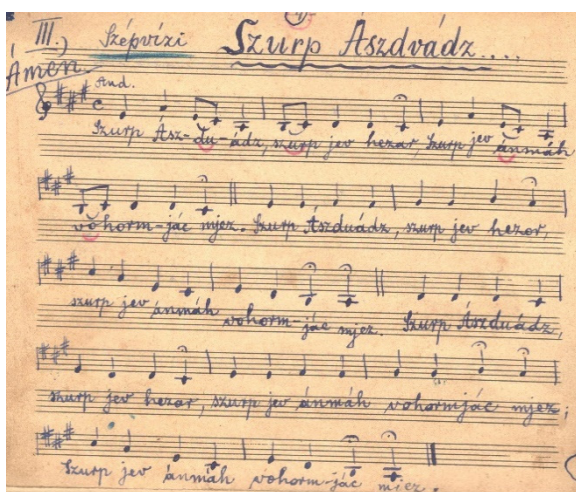 III.) Szépvízi Szurp Aszdvádz....
Ámen
And.
Szurp Ász-du-ádz, szurp jev hezor, Szurp jev ánmáh
vohorm-jác mjez. Szurp Ászduádz, szurp jev hezor,
szurp jev ánmáh vohorm-jác mjez. Szurp Ászduádz,
szurp jev hezor, szurp jev ánmáh vohormjác mjez;
Szurp jev ánmáh vohorm-jác mjez.